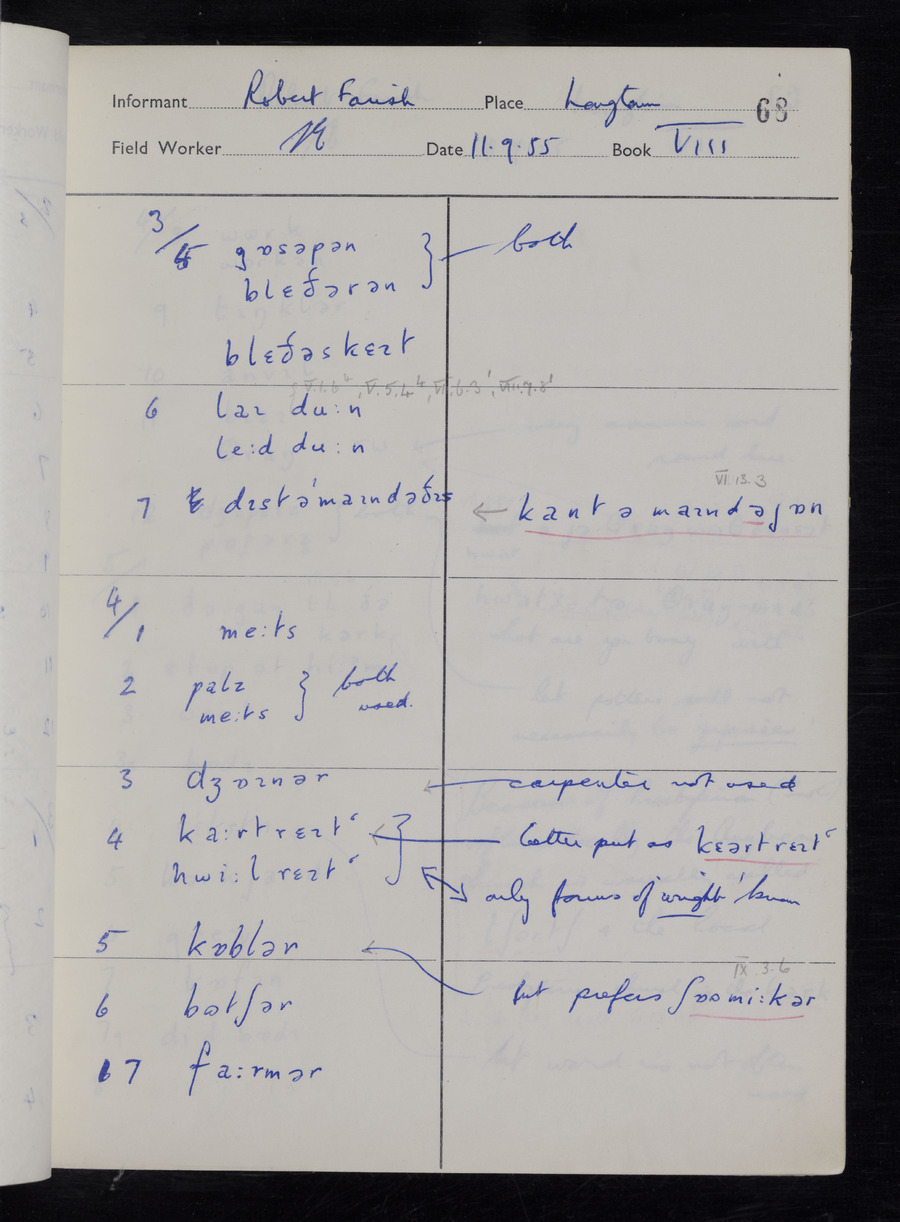 Informant Robert Farish Place Longtown 68
Field Worker Date 11.9.55 Book VIII
3/5 gɒsəpən } both
blɛðərən
blɛðəskɛɪt
V.1.6⁴, V.5.4⁴, VI.6.3¹, VIII.7.8¹
6 laɪ du:n
le:d du:n
VI.13.3
7 dɪstə'maɪndəðɪs ← kantəmaɪndəjɒn
4/1 me:ts
2 palz } both
me:ts used.
3 dʒɒɪnər ← carpenter not used
4 ka:rtrɛɪtʿ ← } better put as kɛərtrɛɪtʿ
hwi:lrɛɪtʿ only forms of 'wright' known
5 kɒblər ←
IX.3.6
but prefers ʃɒomi:kər
6 bətʃər
7 fa:rmər